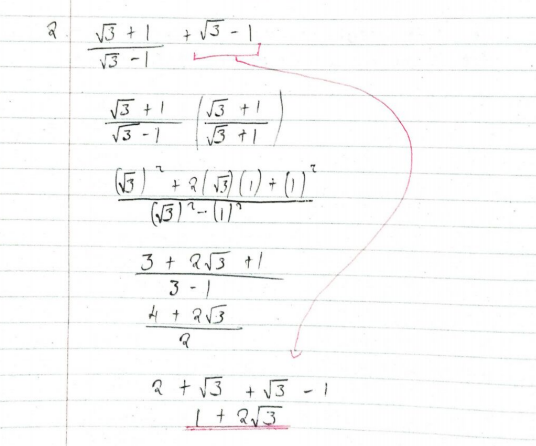 2 (√3 + 1)/(√3 - 1) + √3 - 1
(√3 + 1)/(√3 - 1) ((√3 + 1)/(√3 + 1))
((√3)² + 2(√3)(1) + (1)²)/((√3)² - (1)²)
(3 + 2√3 + 1)/(3 - 1)
(4 + 2√3)/2
2 + √3 + √3 - 1
1 + 2√3